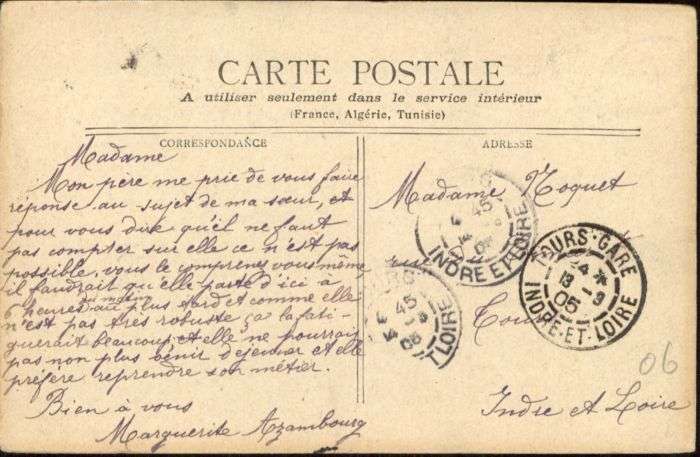 CARTE POSTALE
A utiliser seulement dans le service intérieur
(France, Algérie, Tunisie)
CORRESPONDANCE
Madame
Mon père me prie de vous faire
réponse au sujet de ma sœur, et
pour vous dire qu'il ne faut
pas compter sur elle ce n'est pas
possible, vous le comprenez vous même
il faudrait qu'elle parte d'ici à
6 heures du matin au plus tard et comme elle
n'est pas très robuste ça la fati-
guerait beaucoup, et elle ne pourrait
pas non plus venir déjeuner et elle
préfère reprendre son métier.
Bien à vous
Marguerite Azambourg
ADRESSE
Madame Noquet
rue
Tou
Indre et Loire
45
INDRE ET LOIRE
45
06
LOIRE
TOURS-GARE
13 -9
05
INDRE-ET-LOIRE
06